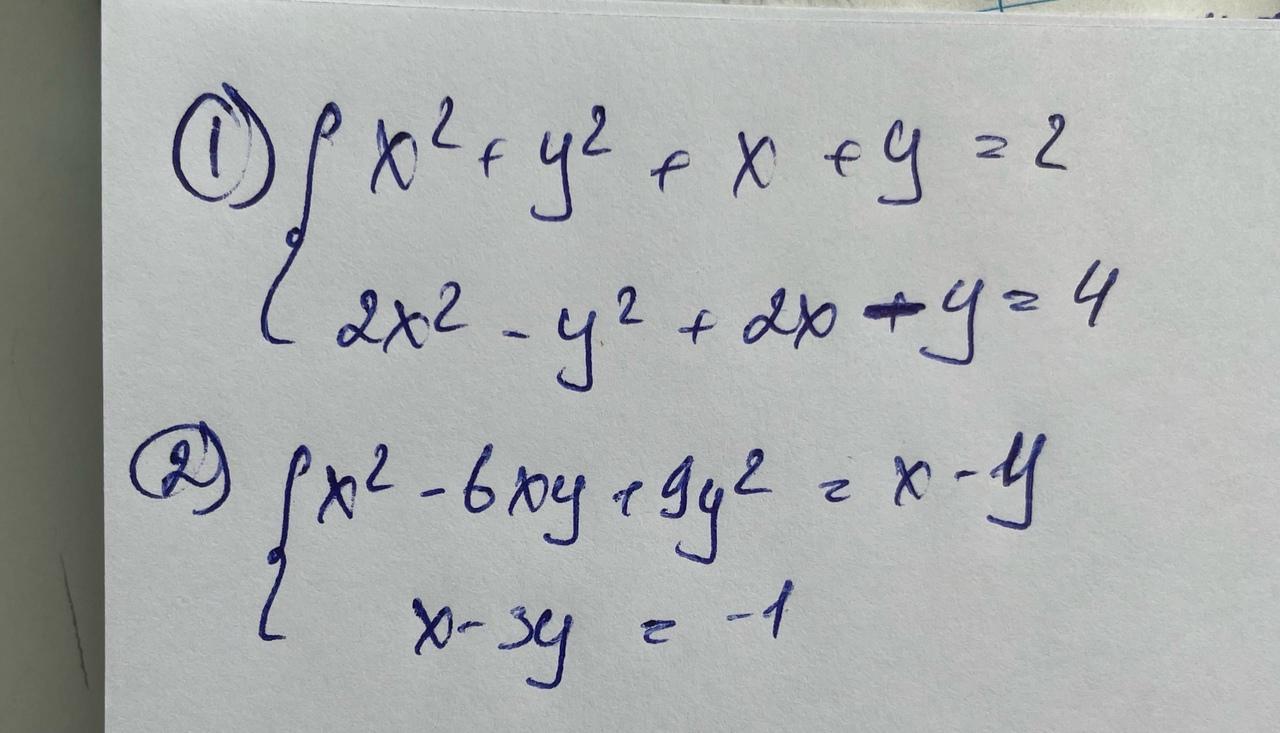 ① { x² + y² + x + y = 2
2x² - y² + 2x - y = 4
② { x² - 6xy + 9y² = x - y
x - 3y = -1